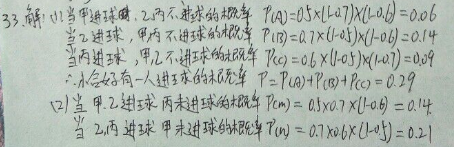 33.解:(1)当甲进球时,乙丙不进球的概率 P(A)=0.5×(1-0.7)×(1-0.6)=0.06
当乙进球,甲丙不进球的概率 P(B)=0.7×(1-0.5)×(1-0.6)=0.14
当丙进球,甲乙不进球的概率 P(C)=0.6×(1-0.5)×(1-0.7)=0.09
∴恰好有一人进球的概率 P=P(A)+P(B)+P(C)=0.29
(2)当甲.乙进球 丙未进球的概率 P(m)=0.5×0.7×(1-0.6)=0.14.
当乙.丙进球 甲未进球的概率 P(n)=0.7×0.6×(1-0.5)=0.21